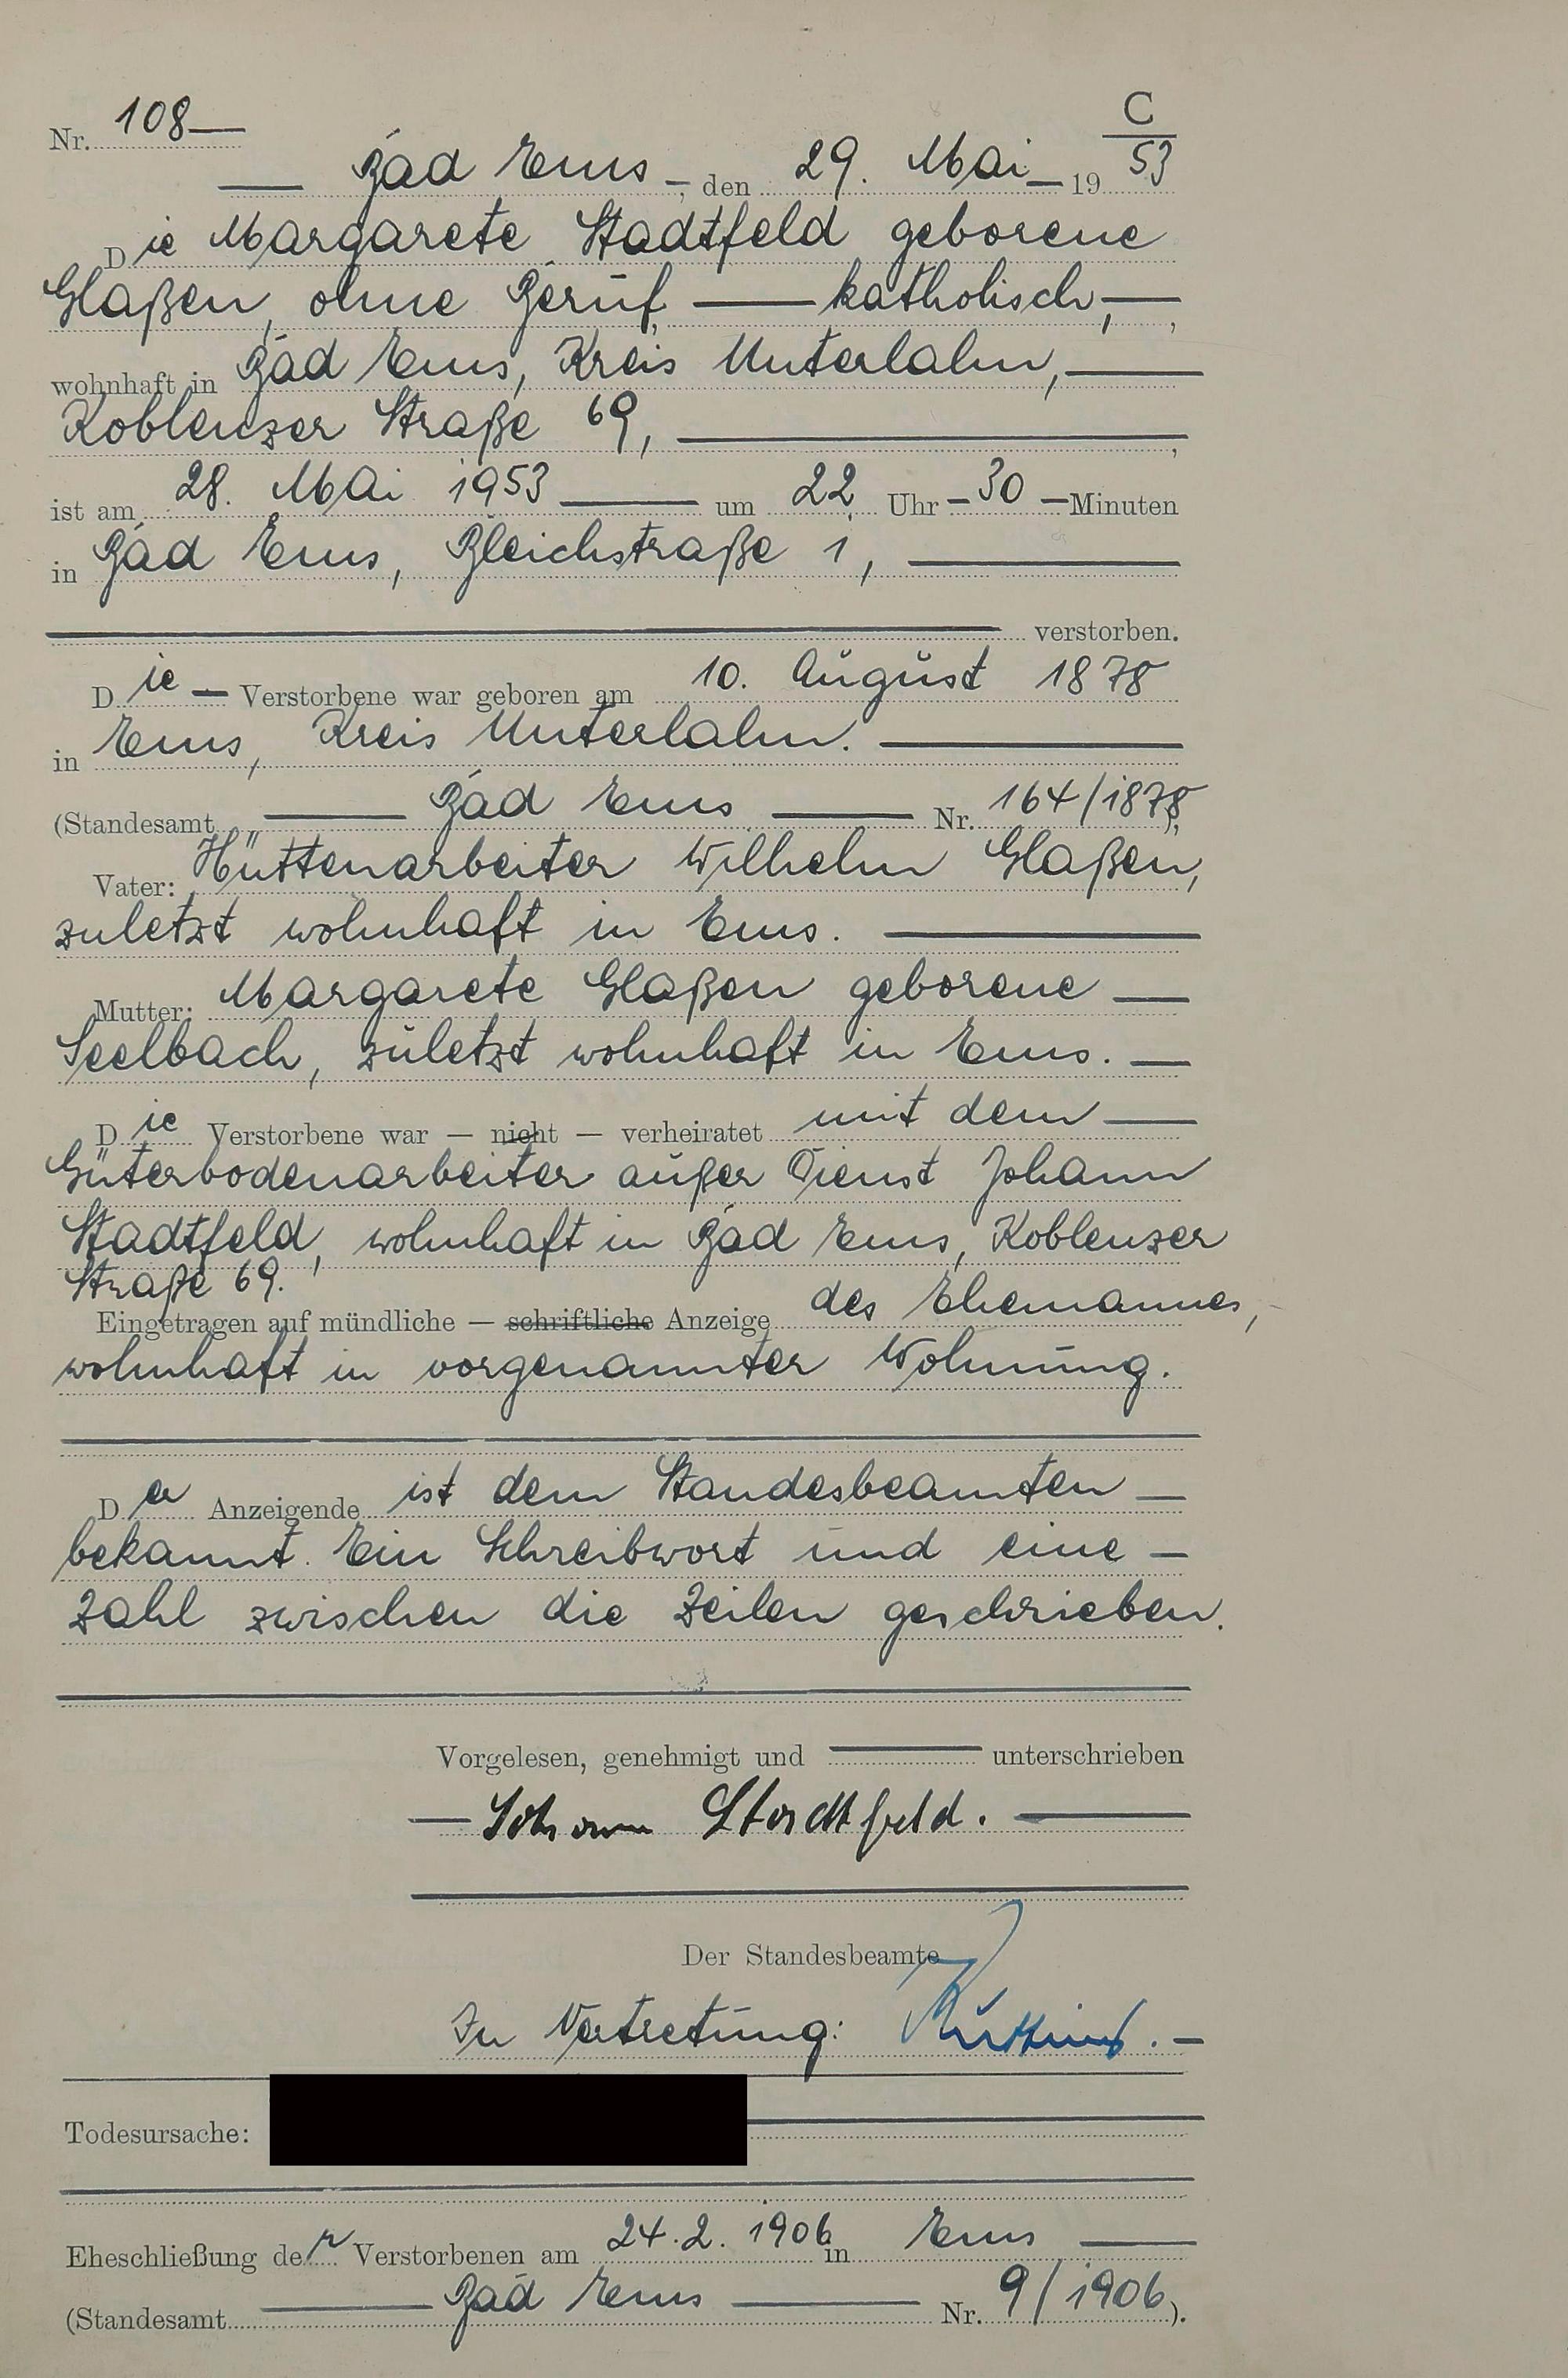 C
Nr. 108
Bad Ems, den 29. Mai 1953
Die Margarete Stadtfeld geborene
Glaßen, ohne Beruf, katholisch,
wohnhaft in Bad Ems, Kreis Unterlahn,
Koblenzer Straße 69,
ist am 28. Mai 1953 um 22 Uhr 30 Minuten
in Bad Ems, Bleichstraße 1,
verstorben.
Die Verstorbene war geboren am 10. August 1878
in Ems, Kreis Unterlahn.
(Standesamt Bad Ems Nr. 164/1878),
Vater: Hüttenarbeiter Wilhelm Glaßen,
zuletzt wohnhaft in Ems.
Mutter: Margarete Glaßen geborene
Seelbach, zuletzt wohnhaft in Ems.
Die Verstorbene war — nicht — verheiratet mit dem
Güterbodenarbeiter außer Dienst Johann
Stadtfeld, wohnhaft in Bad Ems, Koblenzer
Straße 69.
Eingetragen auf mündliche — schriftliche Anzeige des Ehemannes,
wohnhaft in vorgenannter Wohnung.
Der Anzeigende ist dem Standesbeamten
bekannt. Ein Schreibwort und eine
Zahl zwischen die Zeilen geschrieben.
Vorgelesen, genehmigt und unterschrieben
Johann Stadtfeld.
Der Standesbeamte
In Vertretung:
Todesursache:
Eheschließung der Verstorbenen am 24.2.1906 in Ems
(Standesamt Bad Ems Nr. 9/1906).